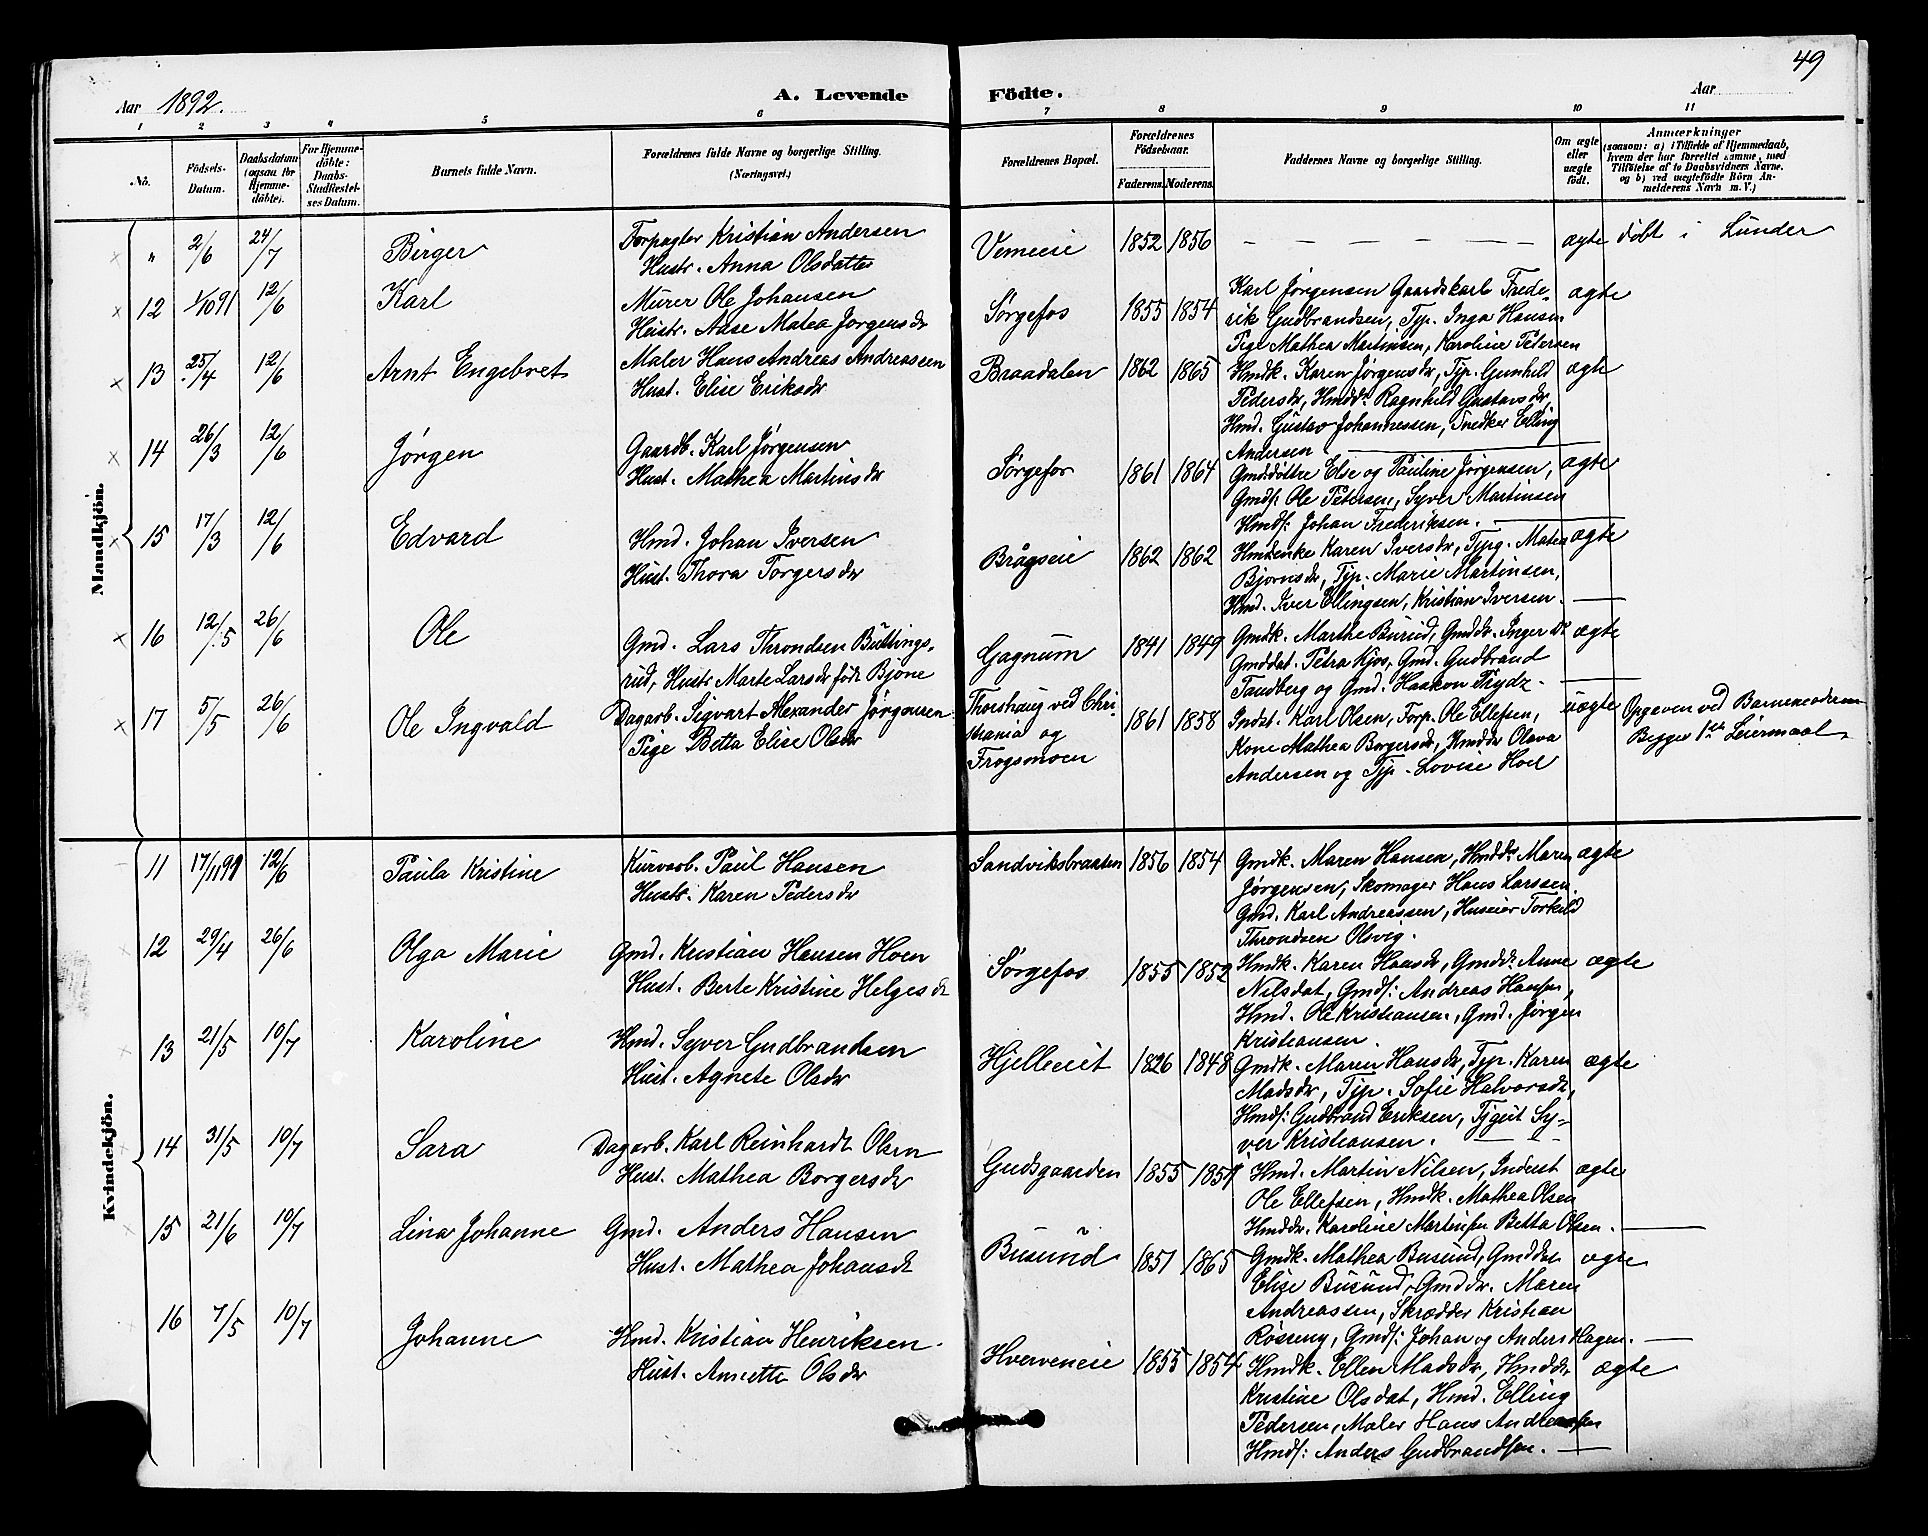 49
Aar 1892.
A. Levende Födte.
Aar
1 2 3 4 5 6 7 8 9 10 11
No. Födsels-Datum. Daabsdatum (ogsaa for Hjemme-döbte). For Hjemme-döbte: Daabs-Stadfæstel-ses Datum. Barnets fulde Navn. Forældrenes fulde Navne og borgerlige Stilling. (Næringsvei.) Forældrenes Bopæl. Forældrenes Födselsaar. Faderens. Moderens. Faddernes Navne og borgerlige Stilling. Om ægte eller uægte födt. Anmærkninger (saasom: a) i Tilfælde af Hjemmedaab, hvem der har forrettet samme, med Tilföielse af to Daabsvidners Navne, og b) ved uægtefödte Börn An-melderens Navn m. V.)
Mandkjön.
" 2/6 24/7 Birger Forpagter Kristian Andersen Vemeeie 1852 1856 — — — — — — ægte döbt i Lunder
Hustr. Anna Olsdatter
12 1/10 91 12/6 Karl Murer Ole Johansen Sørgefos 1855 1854 Karl Jørgensen Gaardskarl Frede- ægte
Hustr. Aase Matea Jorgensdr rik Gudbrandsen, Typ. Inga Hansen
Pige Mathea Martinsen, Karoline Pedersen
13 25/4 12/6 Arnt Engebret Maler Hans Andreas Andreassen Braadalen 1862 1865 Hmdk. Karen Jørgensdr, Tjp. Gunhild ægte
Hust. Elise Eriksdr Pedersdr, Hmdd. Ragnhild Gustavsdr,
Hmd. Gustav Johannessen, Snedker Elling
Andersen
14 26/3 12/6 Jørgen Gaardb. Karl Jørgensen Sørgefos 1861 1864 Gmd.döttre Else og Pauline Jørgensen, ægte
Hust. Mathea Martinsdr Gmds. Ole Petersen, Syver Martinsen
Hmds. Johan Frederiksen.
15 17/3 12/6 Edvard Hmd. Johan Iversen Brågseie 1862 1862 Hmdenke Karen Iversdr, Tjpg. Matea ægte
Hust. Thora Torgersdr Bjornsdr, Tjp. Marie Martinsen,
Hmd. Iver Ellingsen, Kristian Iversen.
16 12/5 26/6 Ole Gmd. Lars Throndsen Büttings- Gagnum 1841 1849 Gmdk. Marthe Burud, Gmddr. Inger Dº ægte
rud, Hustr Marte Larsdr födt Bjone Gmddat. Petra Kjos, Gmd. Gudbrand
Tandberg og Gmd. Haakon Trydz.
17 5/5 26/6 Ole Ingvald Dagarb. Sigvart Alexander Jørgensen Thorshaug ved Chri- 1861 1858 Indst. Karl Olsen, Forp. Ole Ellefsen, uægte Opgiven ved Barnemoderen
Pige Betta Elise Olsdr stiania og Kone Mathea Borgersdr, Hmddr Olava Begges 1ste Leiermaal
Frogsmoen Andersen og Tjp. Lovise Hoel
Kvindekjön.
11 17/11 91 12/6 Paula Kristine Kurvarb. Paul Hansen Sandviksbraaten 1856 1854 Gmdk. Maren Hansen, Hmddr Maren ægte
Hustr. Karen Pedersdr Jørgensen, Skomager Hans Larssen.
Gmd. Karl Andreassen, Huseier Torkild
Throndsen Olsvig.
12 29/4 26/6 Olga Marie Gmd. Kristian Hansen Hoen Sørgefos 1855 1852 Hmdk. Karen Hansdr, Gmdd. Anne ægte
Hust. Berte Kristine Helgesdt Nilsdat, Gmds. Andreas Hansen,
Hmd. Ole Kristiansen, Gmd. Jørgen
Kristiansen.
13 21/5 10/7 Karoline Hmd. Syver Gudbrandsen Hjelleeiet 1826 1848 Gmdk. Maren Hansdr, Typ. Karen ægte
Hust. Agnete Olsdr Madsdr, Tjp. Sofie Halvorsdt,
Hmds. Gudbrand Eriksen, Tjgut Sy-
ver Kristiansen.
14 31/5 10/7 Sara Dagarb. Karl Reinhardt Olsen Gudsgaarden 1855 1857 Hmd. Martin Nilsen, Inderst ægte
Hust. Mathea Borgersdr Ole Ellefsen, Hmdk. Mathea Olsen
Hmddr. Karoline Martinsen Betta Olsen.
15 21/6 10/7 Lina Johanne Gmd. Anders Hansen Busund 1851 1865 Gmdk. Mathea Busund, Gmddat ægte
Hust. Mathea Johansdt Elise Busund, Gmddr. Maren
Andreassen, Skrædder Kristian
Røsseng, Gmds. Johan og Anders Hagen.
16 7/5 10/7 Johanne Hmd. Kristian Henriksen. Hverveneie 1855 1854 Hmdk. Ellen Madsdr, Hmddr ægte
Hust. Annette Olsdr Kristine Olsdat, Hmd. Elling
Pedersen, Maler Hans Andreassen
Hmds. Anders Gudbrandsen.